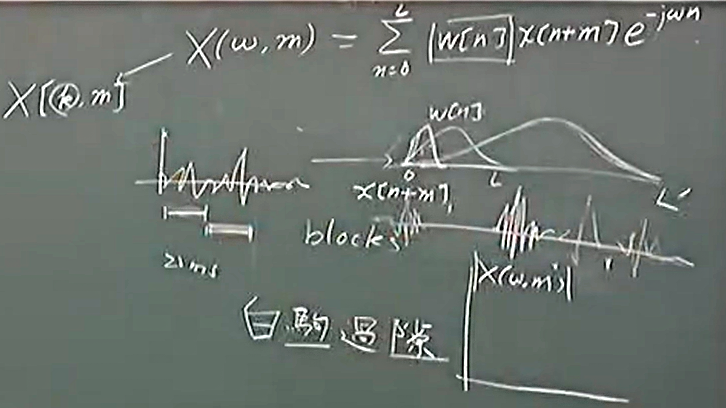 X(ω,m) = Σ_{n=0}^{L} W[n] x[n+m] e^{-jωn}
X[k,m]
W[n]
0 L L'
x[n+m]
blocks
|X(ω,m)|
白駒過隙